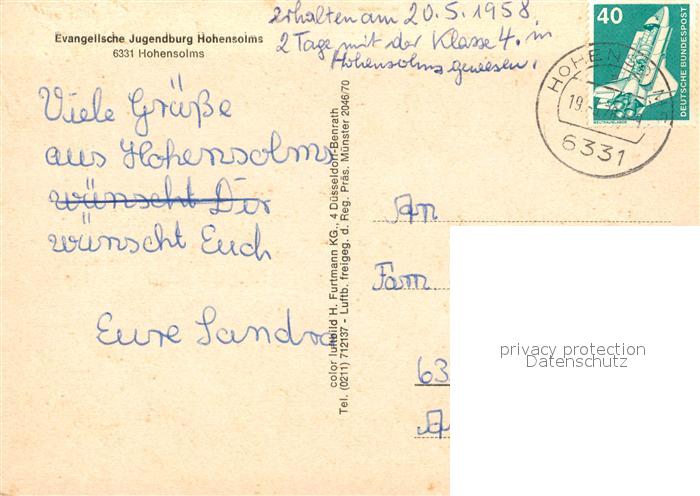 Evangelische Jugendburg Hohensolms
6331 Hohensolms
erhalten am 20.5.1958,
2 Tage mit der Klasse 4. m
Hohensolms gewesen.
Viele Grüße
aus Hohensolms
wünscht Dir
wünscht Euch
Eure Sandra
color luftbild H. Furtmann KG., 4 Düsseldorf-Benrath
Tel. (0211) 712137 - Luftb. freigeg. d. Reg. Präs. Münster 2046/70
40
DEUTSCHE BUNDESPOST
6331
An
Fam.
63
privacy protection
Datenschutz